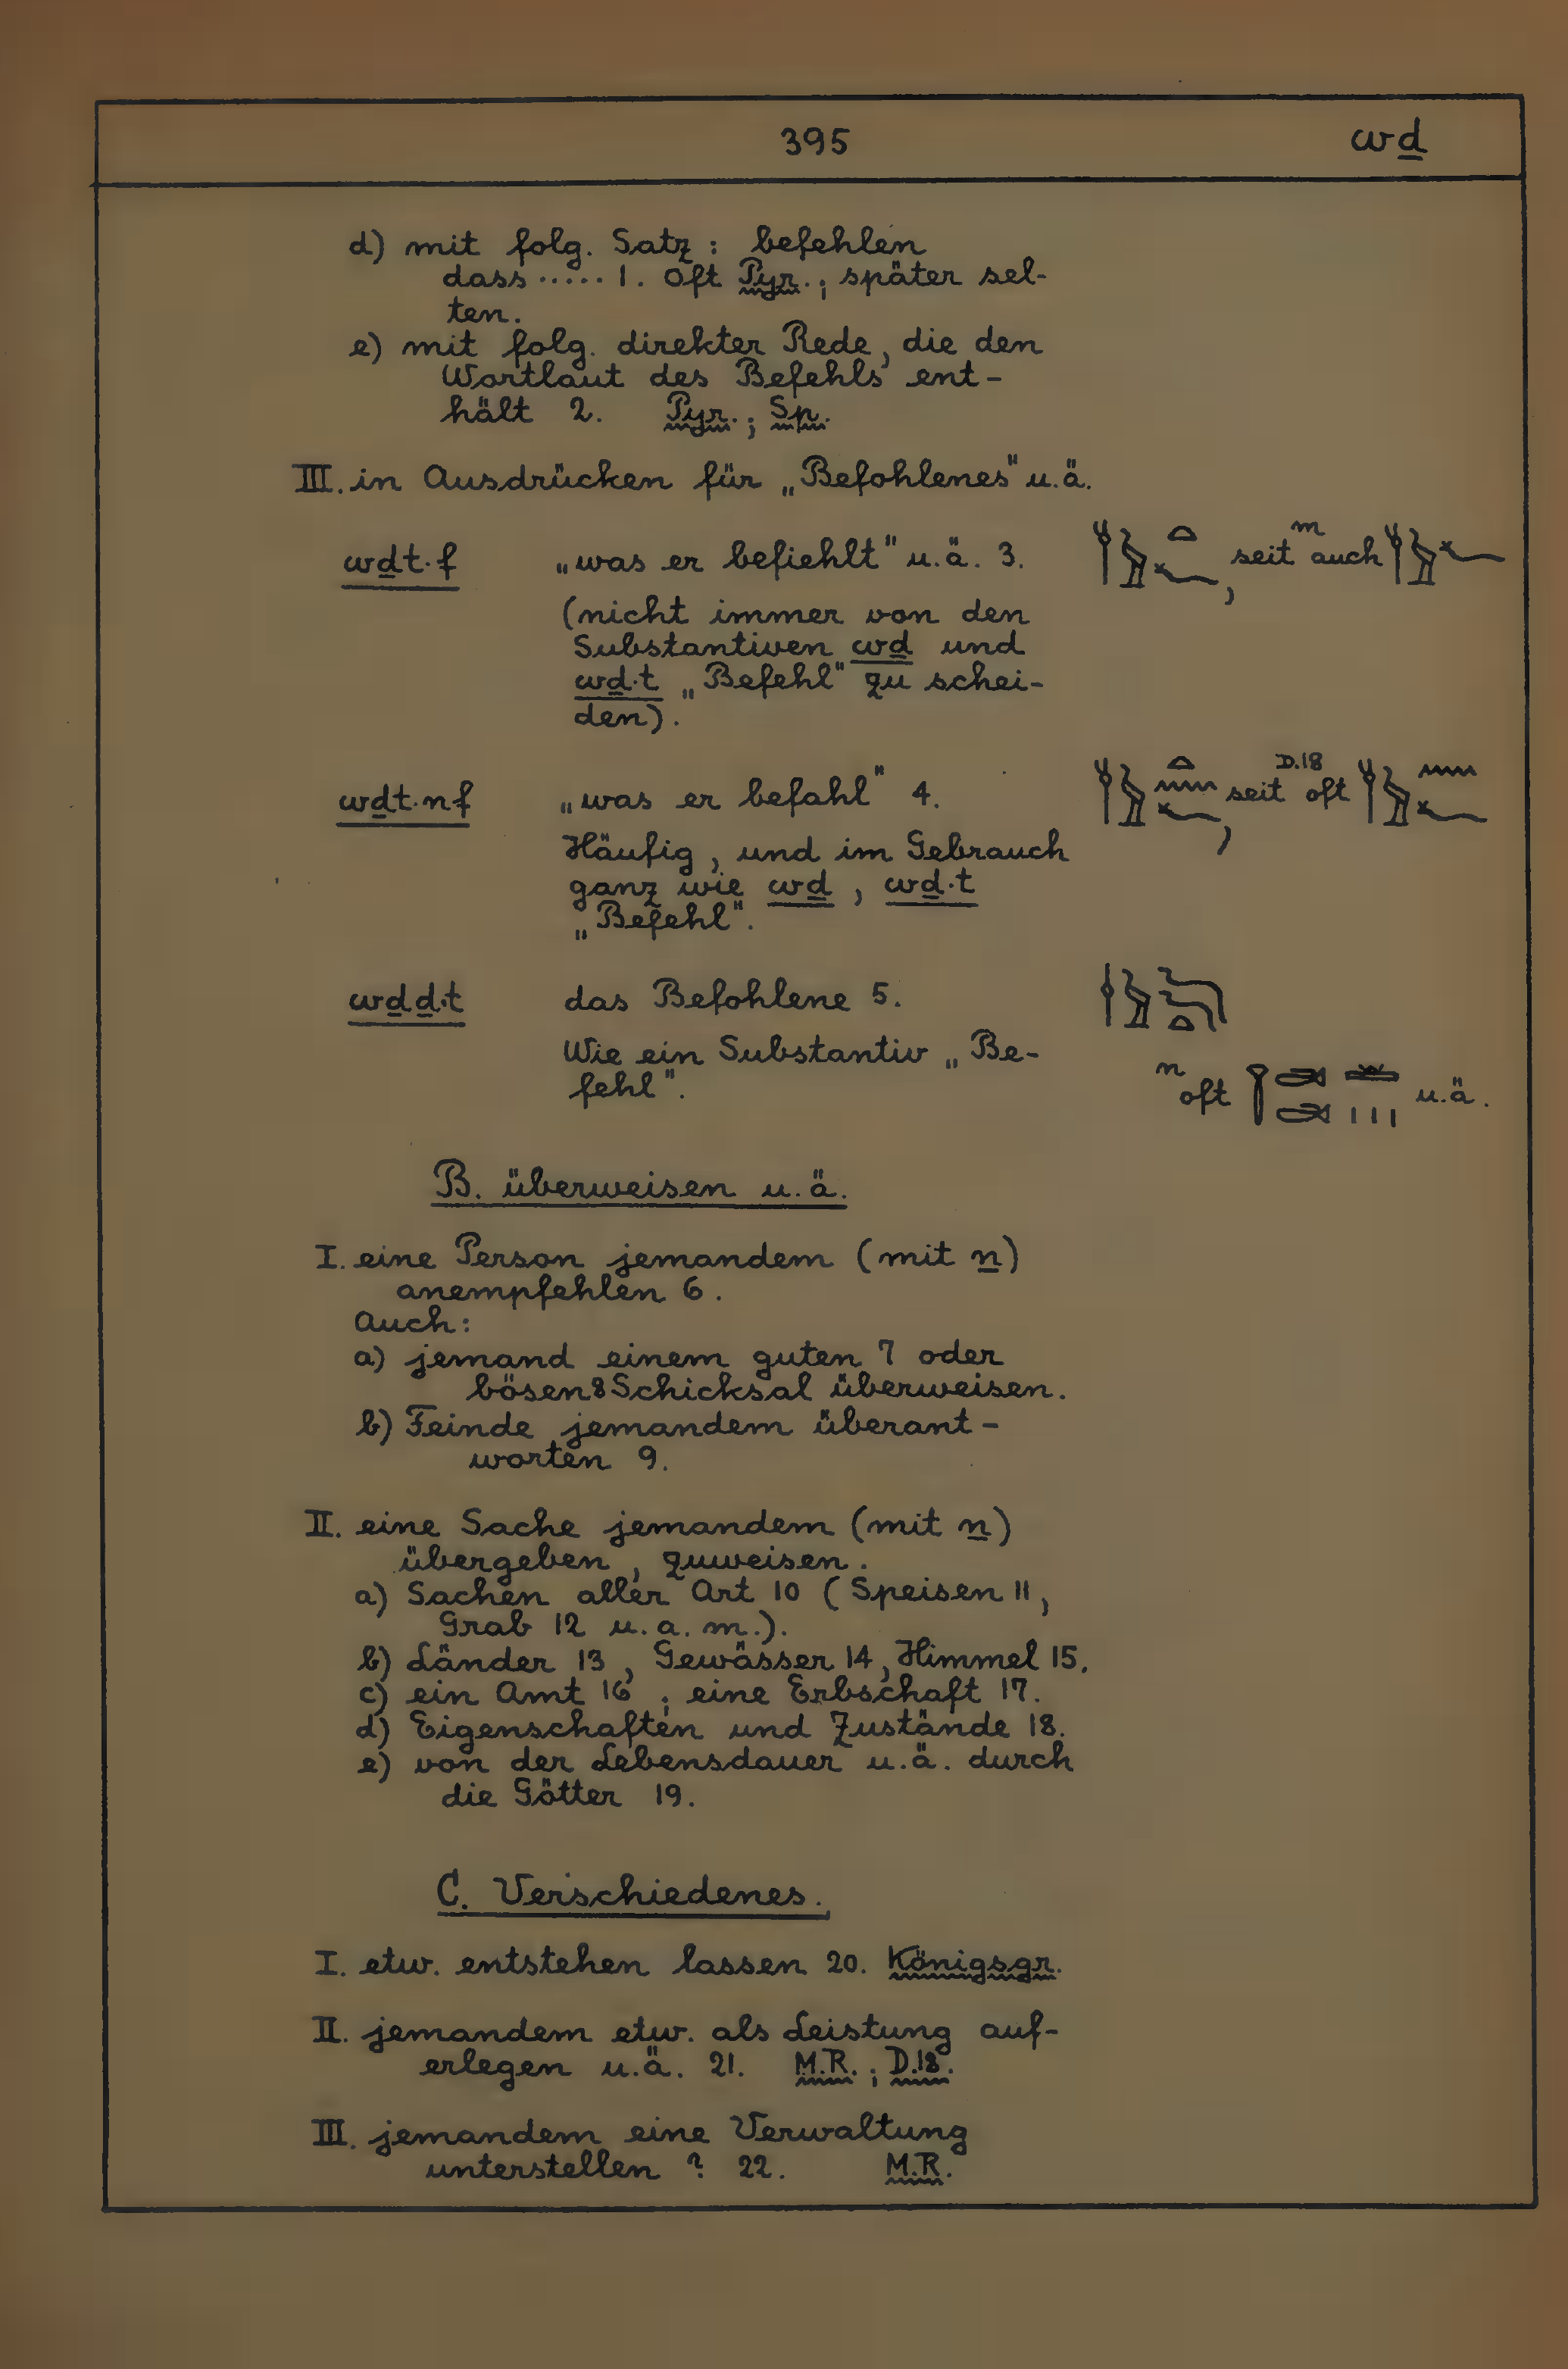 395 wḏ
d) mit folg. Satz: befehlen
dass ..... 1. oft Pyr.; später sel-
ten.
e) mit folg. direkter Rede, die den
Wortlaut des Befehls ent-
hält 2. Pyr.; Sp.
III. in Ausdrücken für „Befohlenes" u.ä.
wḏt·f „was er befiehlt" u.ä. 3. , seit m auch
(nicht immer von den
Substantiven wḏ und
wḏ·t „Befehl" zu schei-
den).
wḏt·nf „was er befahl" 4. , seit D.18 oft
Häufig, und im Gebrauch
ganz wie wḏ, wḏ·t
„Befehl".
wḏḏ·t das Befohlene 5.
Wie ein Substantiv „Be-
fehl". n oft u.ä.
B. überweisen u.ä.
I. eine Person jemandem (mit n)
anempfehlen 6.
Auch:
a) jemand einem guten 7 oder
bösen 8 Schicksal überweisen.
b) Feinde jemandem überant-
worten 9.
II. eine Sache jemandem (mit n)
übergeben, zuweisen.
a) Sachen aller Art 10 (Speisen 11,
Grab 12 u. a. m.).
b) Länder 13, Gewässer 14, Himmel 15.
c) ein Amt 16; eine Erbschaft 17.
d) Eigenschaften und Zustände 18.
e) von der Lebensdauer u.ä. durch
die Götter 19.
C. Verschiedenes.
I. etw. entstehen lassen 20. Königsgr.
II. jemandem etw. als Leistung auf-
erlegen u.ä. 21. M.R.; D.18.
III. jemandem eine Verwaltung
unterstellen ? 22. M.R.